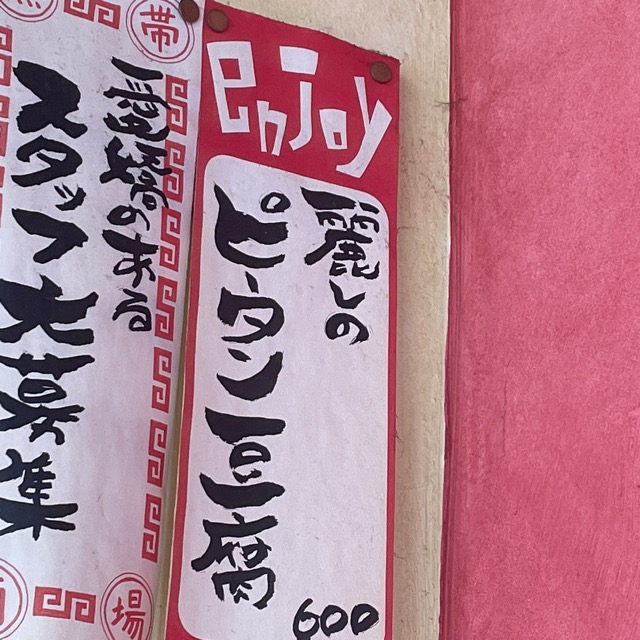 enjoy
麗しの
ピータン豆腐
600
愛嬌のある
スタッフ大募集
帯
場